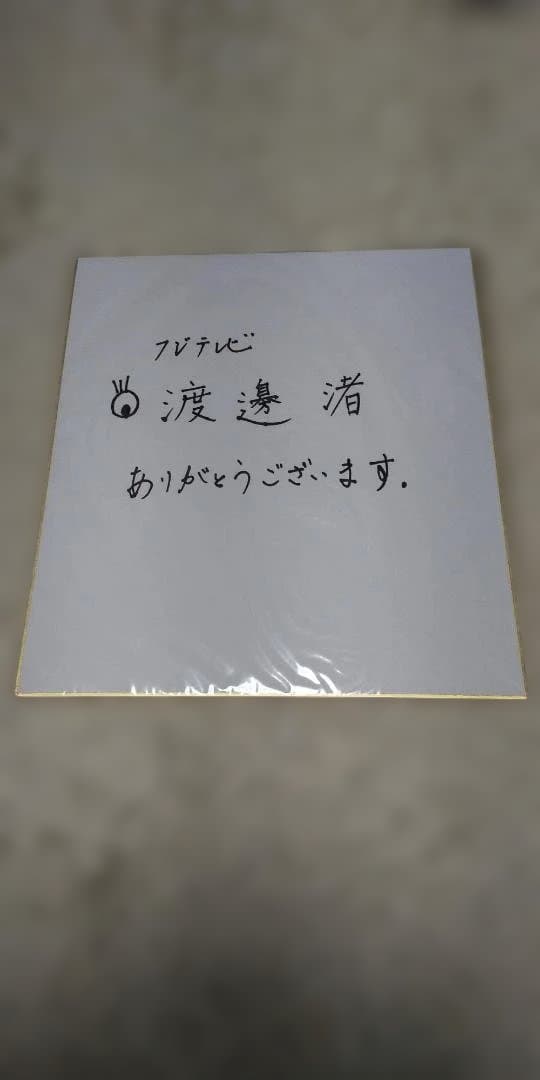 フジテレビ
渡邊 渚
ありがとうございます.